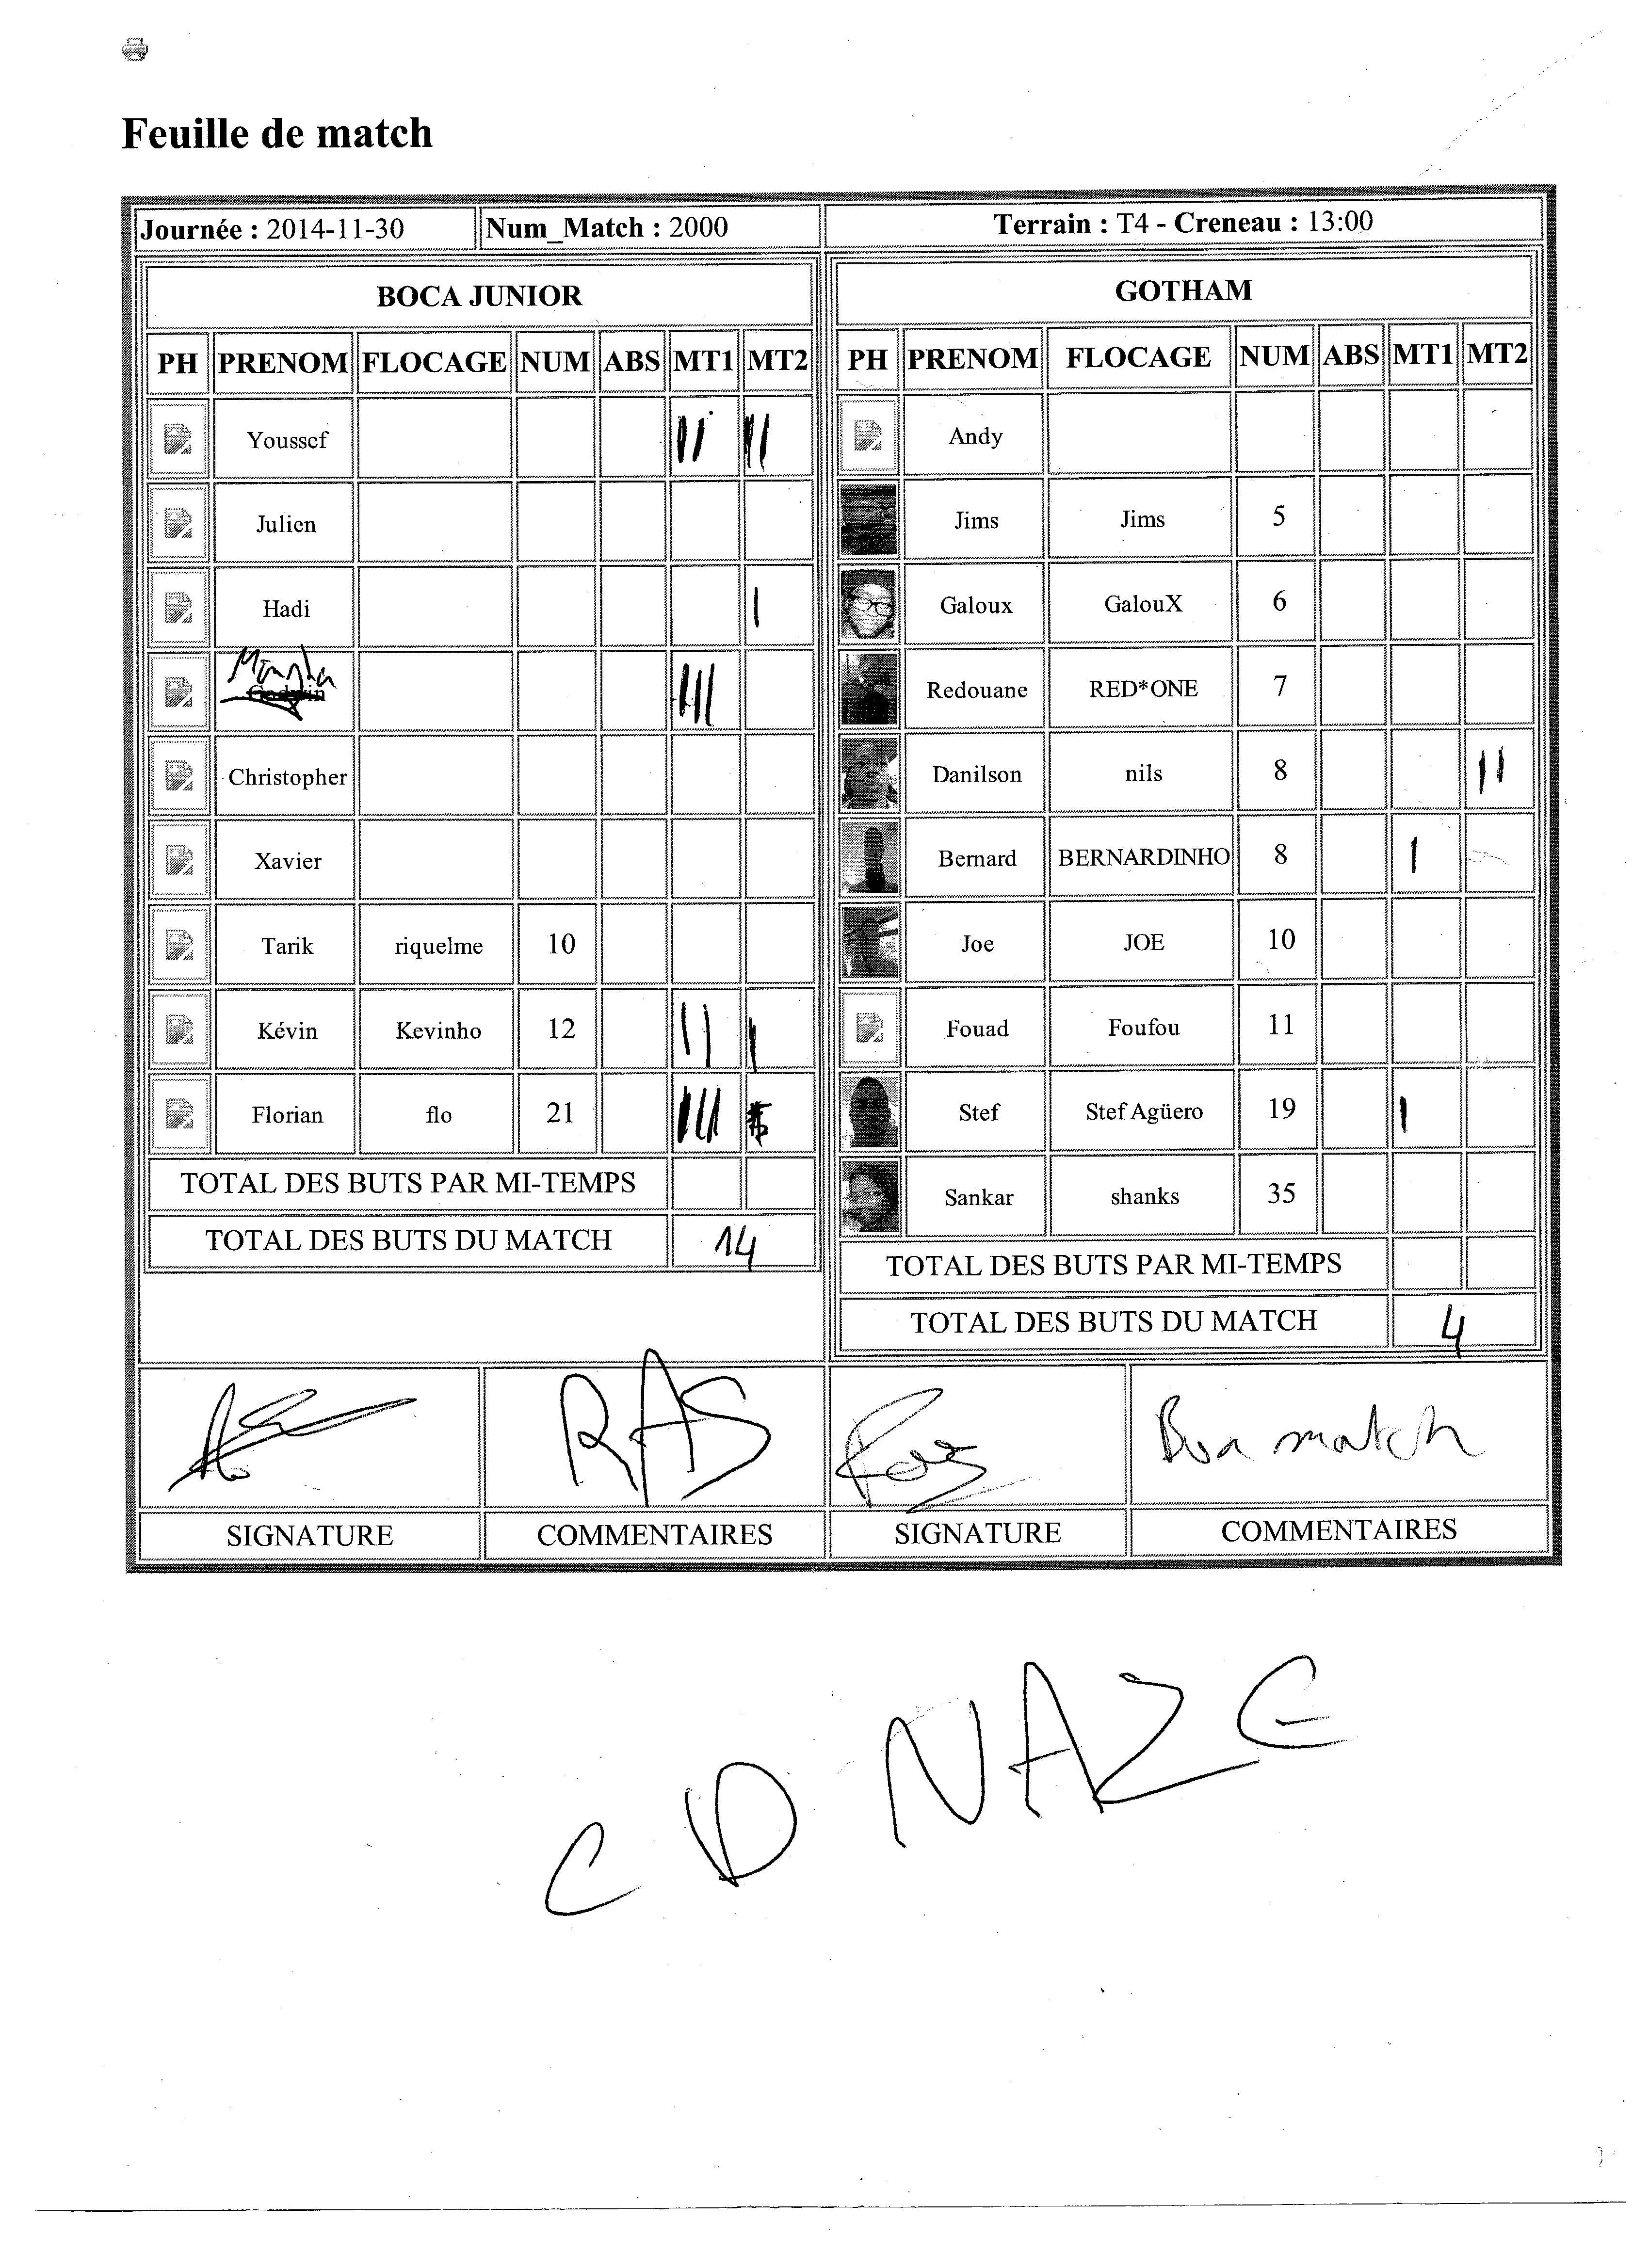 Feuille de match
Journée : 2014-11-30 Num_Match : 2000 Terrain : T4 - Creneau : 13:00
BOCA JUNIOR
PH PRENOM FLOCAGE NUM ABS MT1 MT2
Youssef
Julien
Hadi
Christopher
Xavier
Tarik riquelme 10
Kévin Kevinho 12
Florian flo 21
TOTAL DES BUTS PAR MI-TEMPS
TOTAL DES BUTS DU MATCH 14
GOTHAM
PH PRENOM FLOCAGE NUM ABS MT1 MT2
Andy
Jims Jims 5
Galoux GalouX 6
Redouane RED*ONE 7
Danilson nils 8
Bernard BERNARDINHO 8
Joe JOE 10
Fouad Foufou 11
Stef Stef Agüero 19
Sankar shanks 35
TOTAL DES BUTS PAR MI-TEMPS
TOTAL DES BUTS DU MATCH 4
RAS
Bon match
SIGNATURE COMMENTAIRES SIGNATURE COMMENTAIRES
C D NAZE